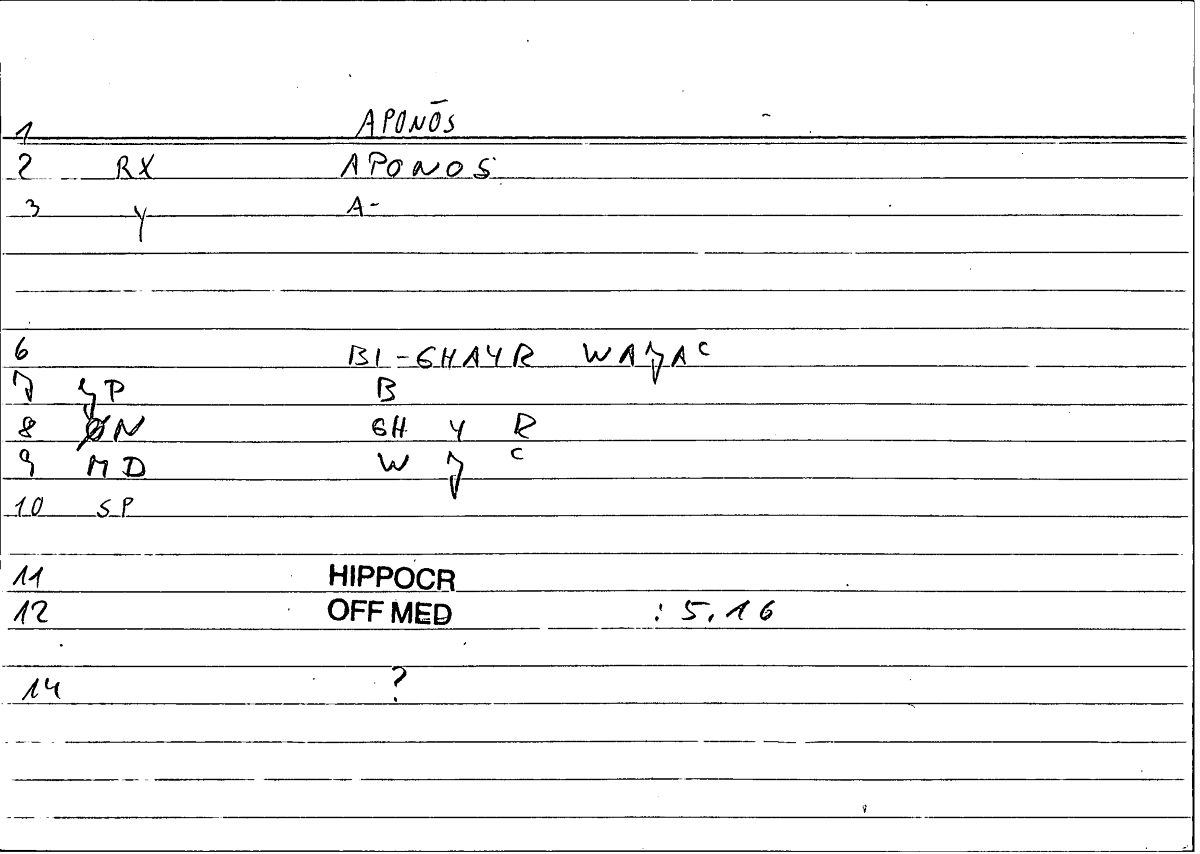 1 APONŌS
2 RX APONOS
3 Y A-
6 BI-GHAYR WAJAC
7 JP B
8 ØN GH Y R
9 MD W J C
10 SP
11 HIPPOCR
12 OFF MED : 5,16
14 ?